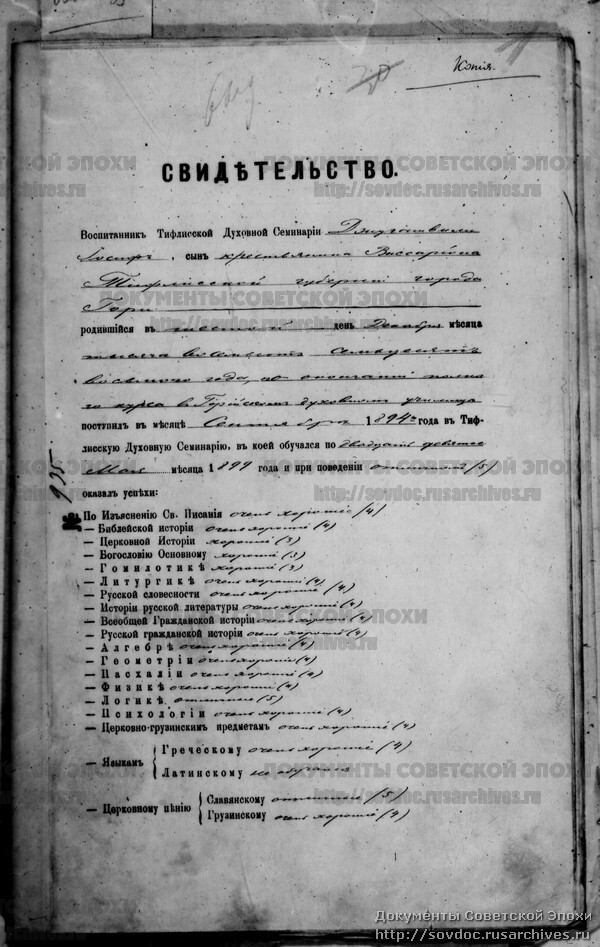 Копія.
СВИДѢТЕЛЬСТВО.
Воспитанникъ Тифлисской Духовной Семинаріи Джугашвили
Іосифъ, сынъ крестьянина Виссаріона
Тифлисской губерніи города
Гори
родившійся въ шестой день Декабря мѣсяца
тысяча восемьсотъ семьдесятъ
восьмого года, по окончаніи полна
го курса въ Горійскомъ духовномъ училищѣ
поступил въ мѣсяцѣ Сентябрѣ 1894 года въ Тиф-
лисскую Духовную Семинарію, въ коей обучался по двадцать девятое
Мая мѣсяца 1899 года и при поведеніи отличномъ (5)
оказал успѣхи:
935
По Изъясненію Св. Писанія очень хорошіе (4)
— Библейской исторіи очень хорошіе (4)
— Церковной Исторіи хорошіе (3)
— Богословію Основному хорошіе (3)
— Гомилетикѣ хорошіе (3)
— Литургикѣ очень хорошіе (4)
— Русской словесности очень хорошіе (4)
— Исторіи русской литературы очень хорошіе (4)
— Всеобщей Гражданской исторіи очень хорошіе (4)
— Русской гражданской исторіи очень хорошіе (4)
— Алгебрѣ очень хорошіе (4)
— Геометріи очень хорошіе (4)
— Пасхаліи очень хорошіе (4)
— Физикѣ очень хорошіе (4)
— Логикѣ отличные (5)
— Психологіи очень хорошіе (4)
— Церковно-грузинскимъ предметамъ очень хорошіе (4)
— Языкамъ
Греческому очень хорошіе (4)
Латинскому не обучался
— Церковному пѣнію
Славянскому отличные (5)
Грузинскому очень хорошіе (4)
ДОКУМЕНТЫ СОВЕТСКОЙ ЭПОХИ
http://sovdoc.rusarchives.ru
Документы Советской Эпохи
http://sovdoc.rusarchives.ru